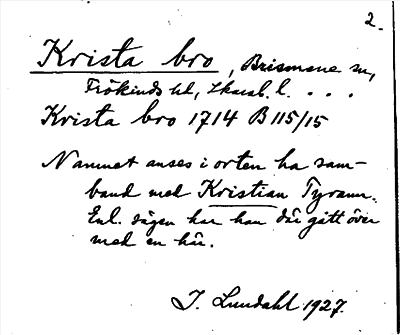 2.
Krista bro, Brismene sn,
Frökinds hd, Skarab. l. . . .
Krista bro 1714 B 115/15
Namnet anses i orten ha sam-
band med Kristian Tyrann.
Enl. sägen har han där gått över
med en här.
J. Lundahl 1927.